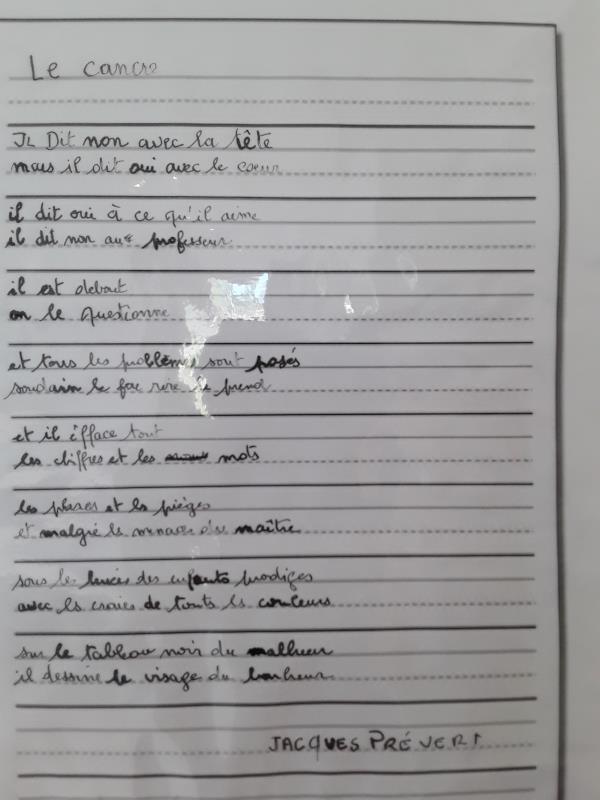 Le cancre
IL Dit non avec la tête
mais il dit oui avec le coeur
il dit oui à ce qu'il aime
il dit non au professeur
il est debout
on le questionne
et tous les problèmes sont posés
soudain le fou rire le prend
et il éfface tout
les chiffres et les mots
les phases et les pièges
et malgré les menaces du maître
sous les huées des enfants prodiges
avec les craies de touts les couleurs
sur le tableau noir du malheur
il dessine le visage du bonheur
JACQUES PRÉVERT